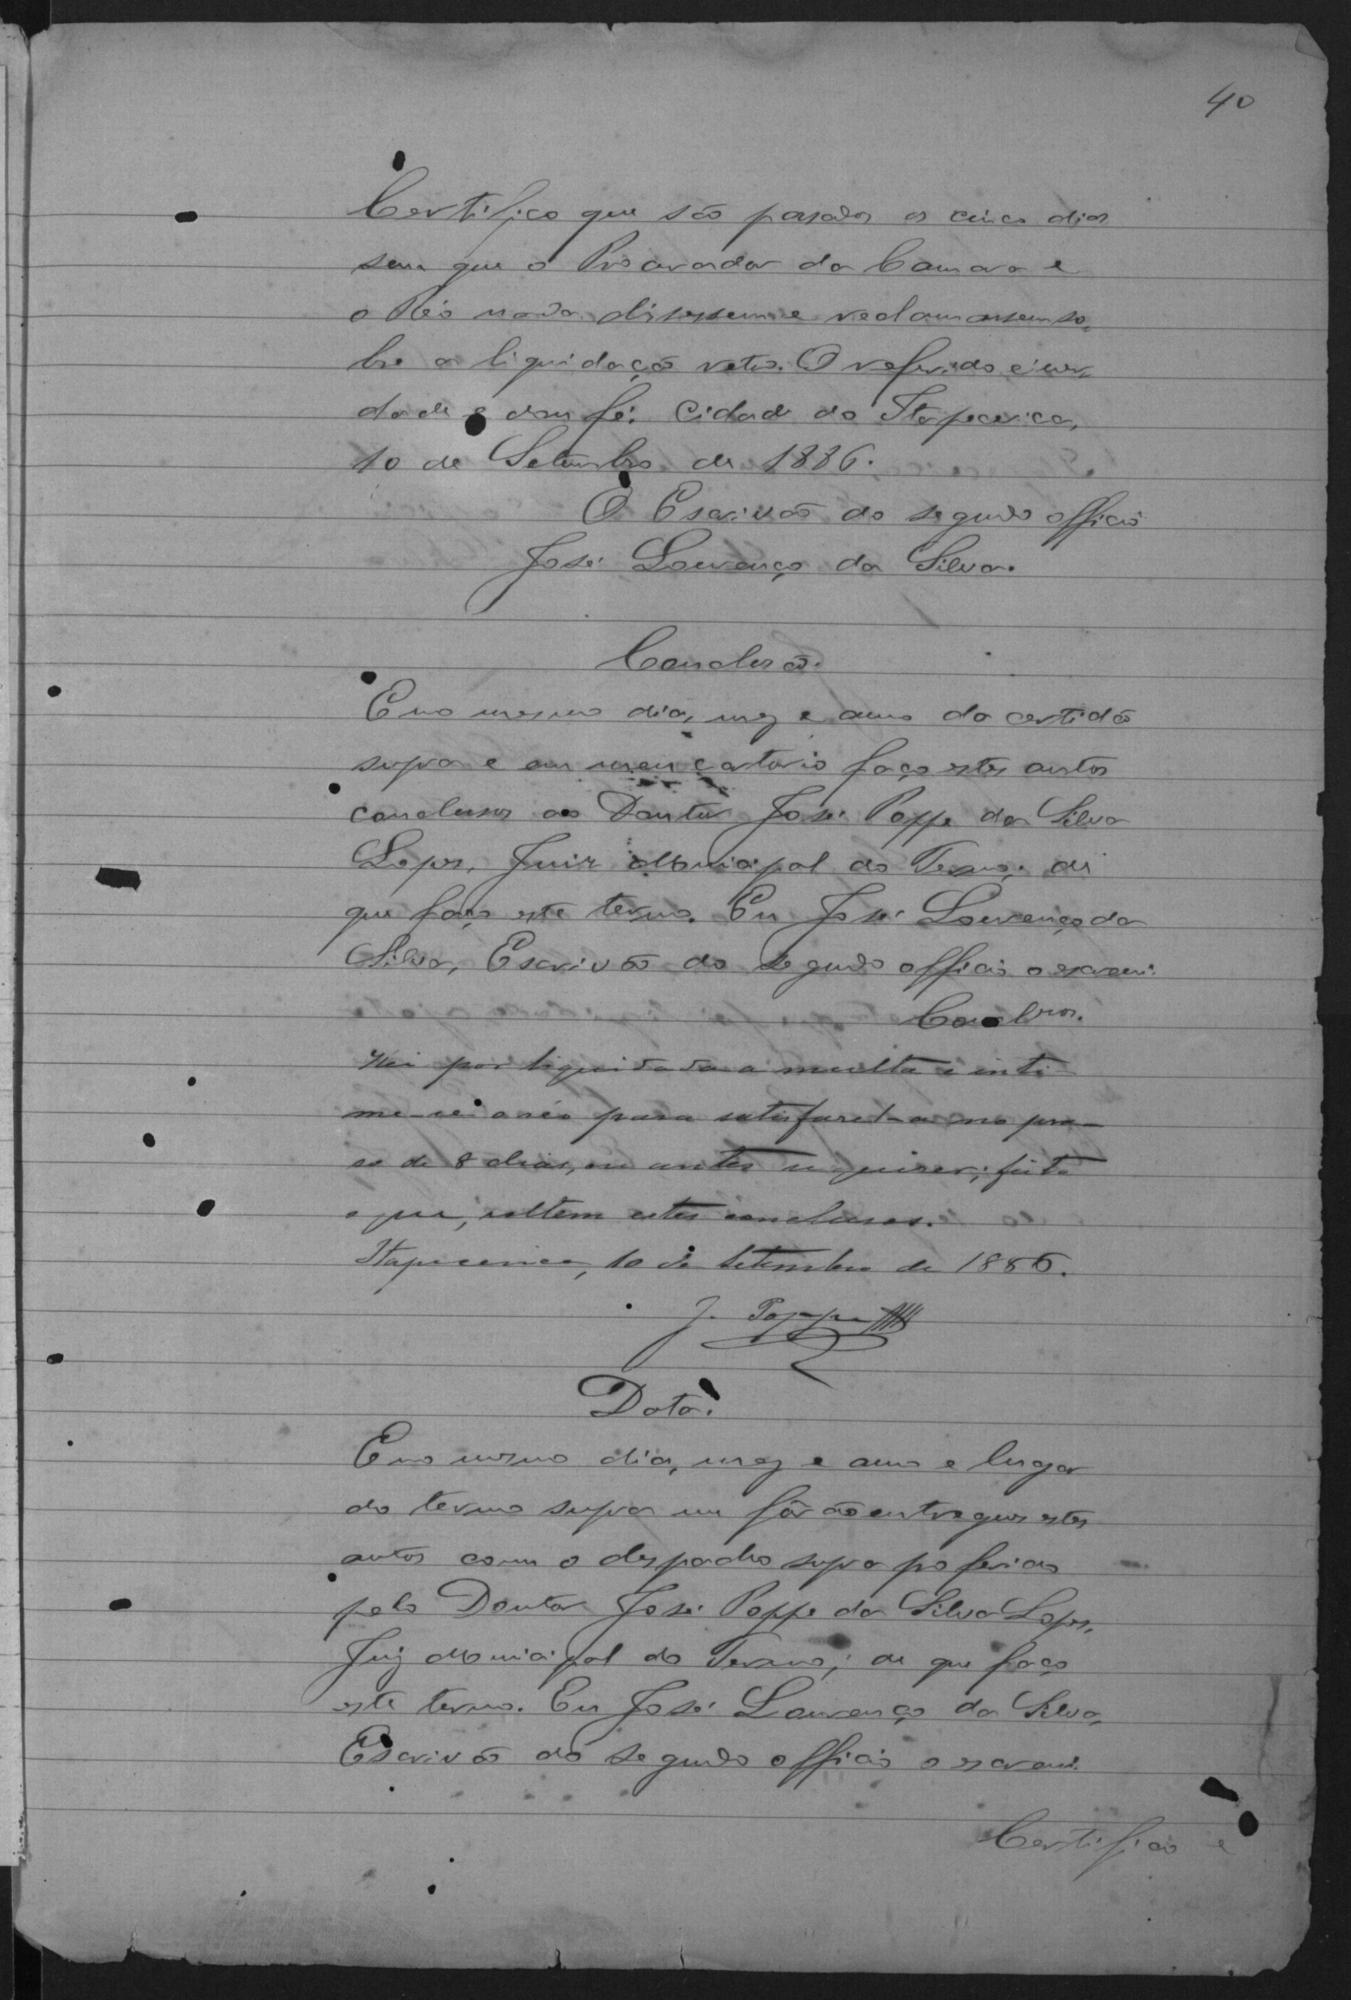 40
Certifico que são passados os cinco dias
sem que o Procurador da Camara e
o Réo nada dissessem e reclamassem so-
bre a liquidação retro. O referido é ver-
dade e dou fé. Cidade do Itapecerica,
10 de Setembro de 1886.
O Escrivão do segundo officio
José Lourenço da Silva.
Conclusão.
E no mesmo dia, mez e anno da certidão
supra e em meu cartorio faço estes autos
conclusos ao Doutor José Poppe da Silva
Lopes, Juiz Municipal do Termo; de
que faço este termo. Eu José Lourenço da
Silva, Escrivão do segundo officio o escrevi.
Conclusos.
Hei por liquidada a multa e inti-
me-se o réo para satisfazel-a no pra-
so de 8 dias, ou antes se quiser; feito
o que, voltem estes conclusos.
Itapecerica, 10 de Setembro de 1886.
J. Poppe
Data.
E no mesmo dia, mez e anno e lugar
do termo supra me forão entregues estes
autos com o despacho supra proferido
pelo Doutor José Poppe da Silva Lopes,
Juiz Municipal do Termo; de que faço
este termo. Eu José Lourenço da Silva,
Escrivão do segundo officio o escrevi.
Certifico e